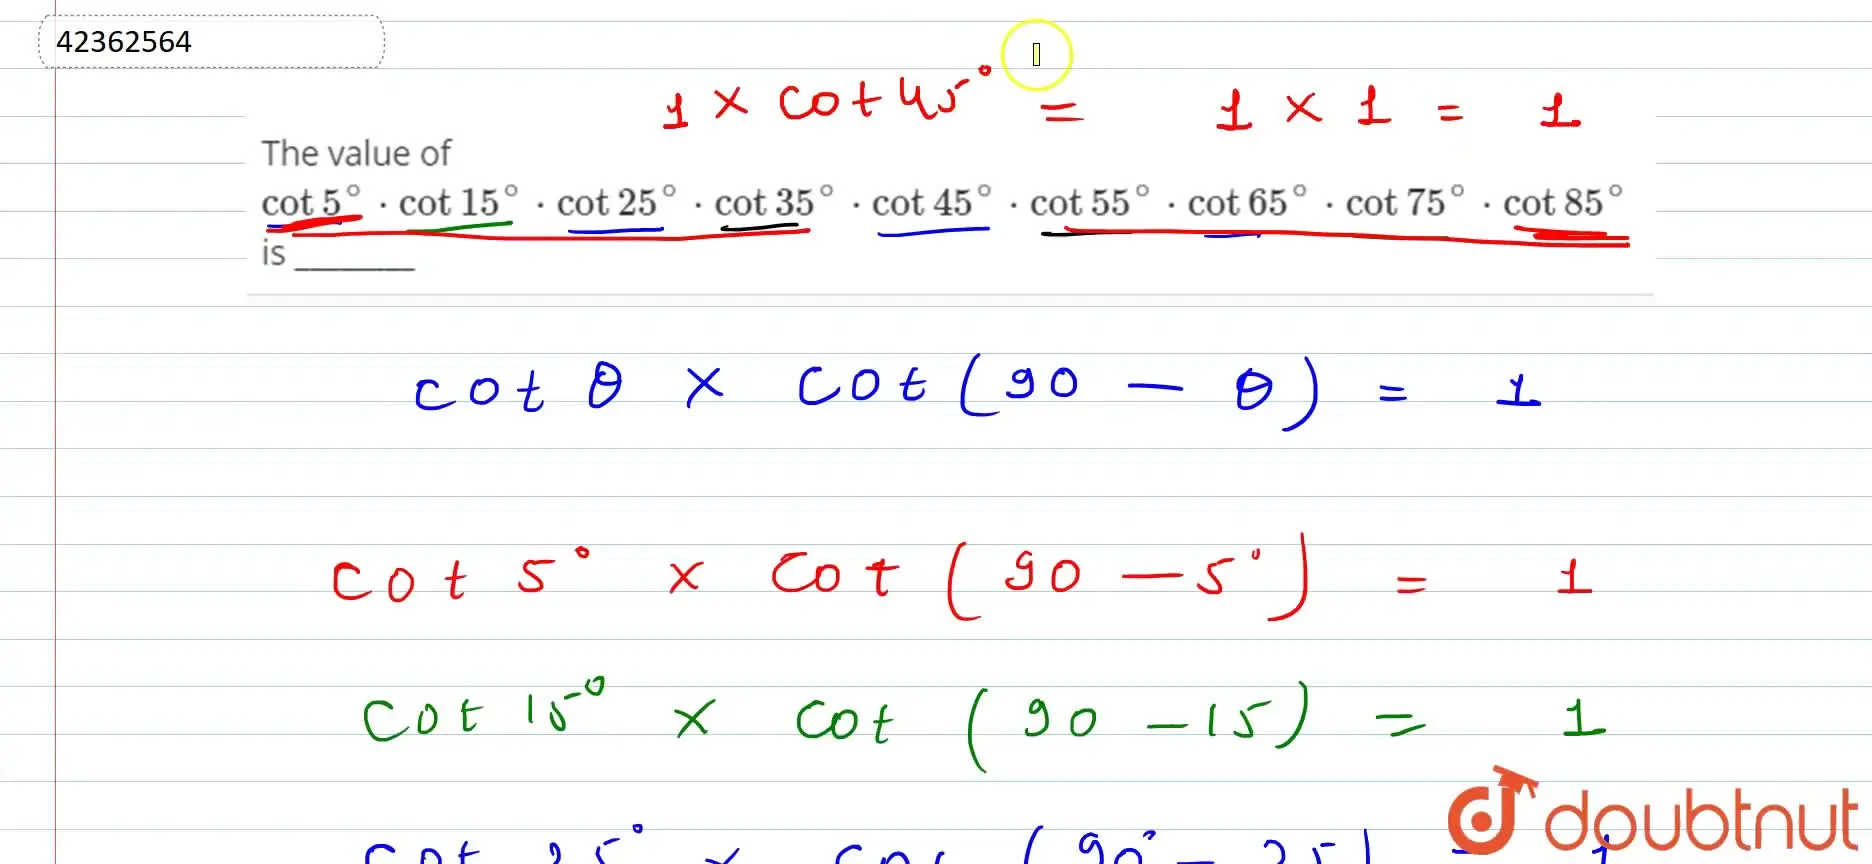 42362564
1 × cot 45° = 1 × 1 = 1
The value of
cot 5° · cot 15° · cot 25° · cot 35° · cot 45° · cot 55° · cot 65° · cot 75° · cot 85°
is ________
cot θ × cot (90 − θ) = 1
cot 5° × cot (90 − 5°) = 1
cot 15° × cot (90 − 15) = 1
cot 25° × cot (90° − 25) = 1
doubtnut